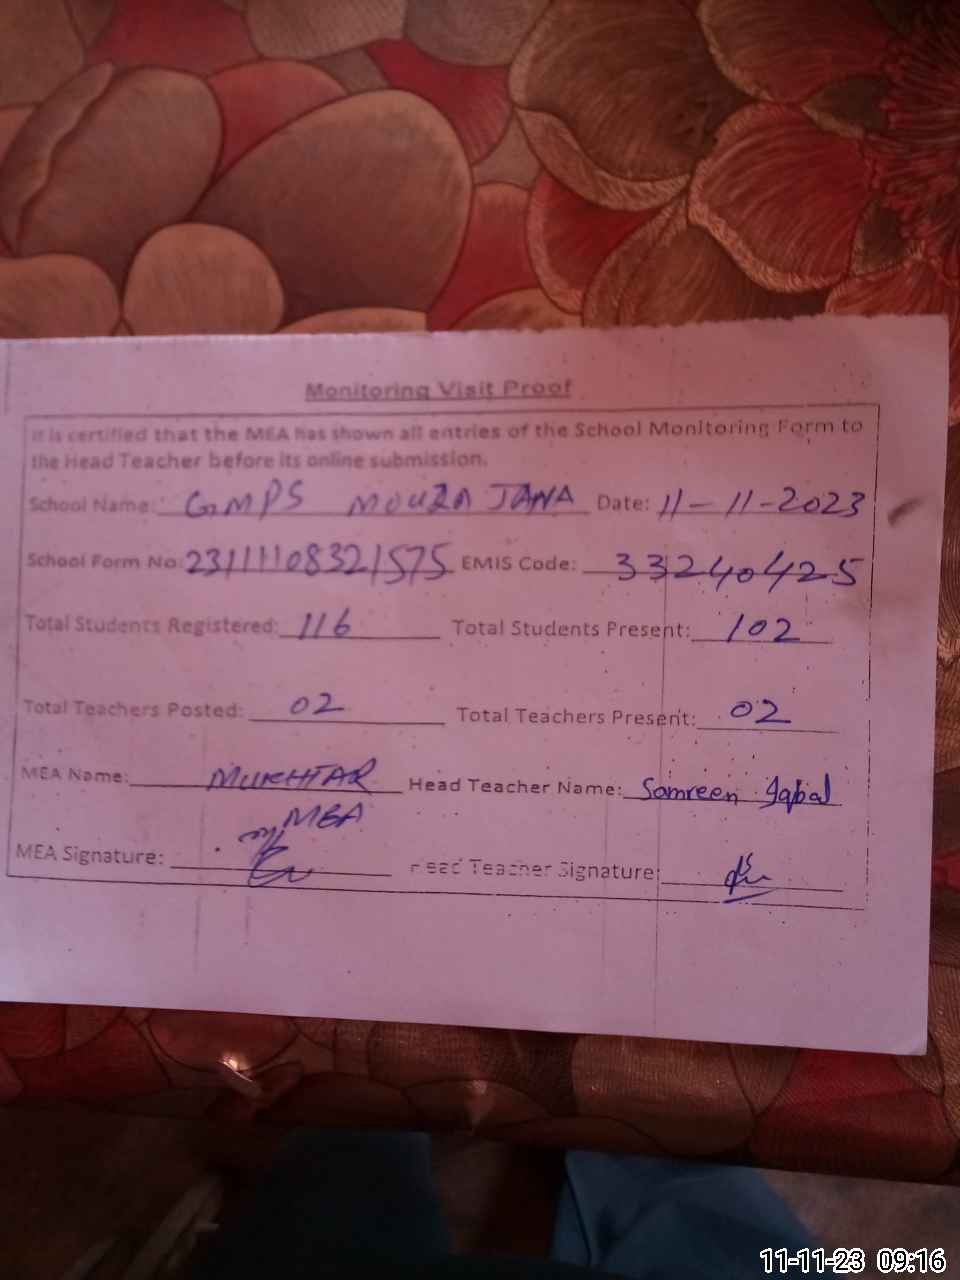 Monitoring Visit Proof
It is certified that the MEA has shown all entries of the School Monitoring Form to
the Head Teacher before its online submission.
School Name: GMPS MOUZA JANA Date: 11-11-2023
School Form No: 23111108321575 EMIS Code: 33240425
Total Students Registered: 116 Total Students Present: 102
Total Teachers Posted: 02 Total Teachers Present: 02
MEA Name: MUKHTAR Head Teacher Name: Samreen Iqbal
MEA
MEA Signature: Head Teacher Signature:
11-11-23 09:16